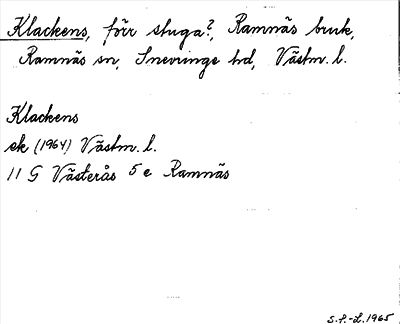 Klackens, förr stuga?, Ramnäs bruk,
Ramnäs sn, Snevringe hd, Västm. l.
Klackens
ek (1964) Västm. l.
11 G Västerås 5 e Ramnäs
S.F.-L. 1965